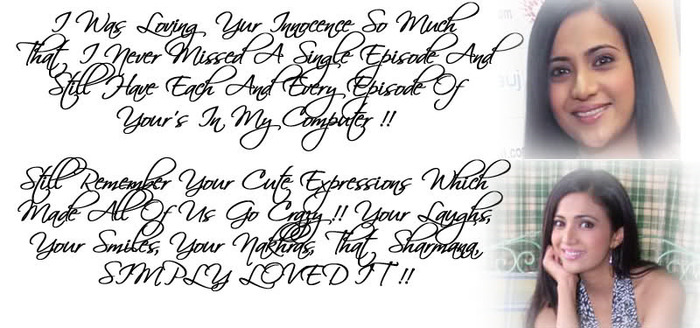 I Was Loving Yur Innocence So Much
That, I Never Missed A Single Episode And
Still Have Each And Every Episode Of
Your's In My Computer !!
Still Remember Your Cute Expressions Which
Made All Of Us Go Crazy !! Your Laughs,
Your Smiles, Your Nakhras, That Sharmana,
SIMPLY LOVED IT !!